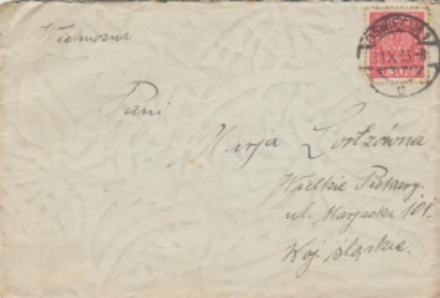 Wielmożna
Pani
Marja Lortzówna
Wielkie Piekary.
ul. Marjacka 101.
Woj. śląskie.